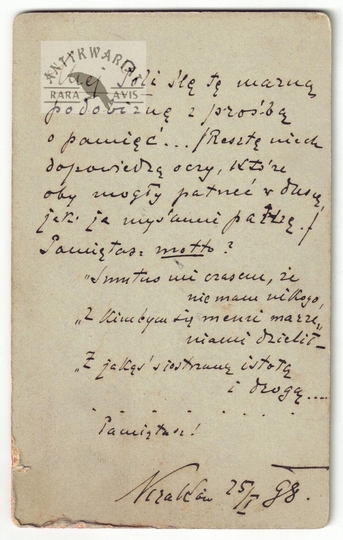 ANTYKWARIAT
RARA AVIS
mej Poli ślę tę marną
podobiznę z prośbą
o pamięć... /Resztę niech
dopowiedzą oczy, które
oby mogły patrzeć w duszę,
jak ja myślami patrzę./
Pamiętasz motto?
„Smutno mi czasem, że
nie mam nikogo,
„Z kimbym się memi marze„
niami dzielił—
„Z jakąś siostrzaną istotą
i drogą....
. . . . . . . .
Pamiętasz!
Kraków 25/I 98.